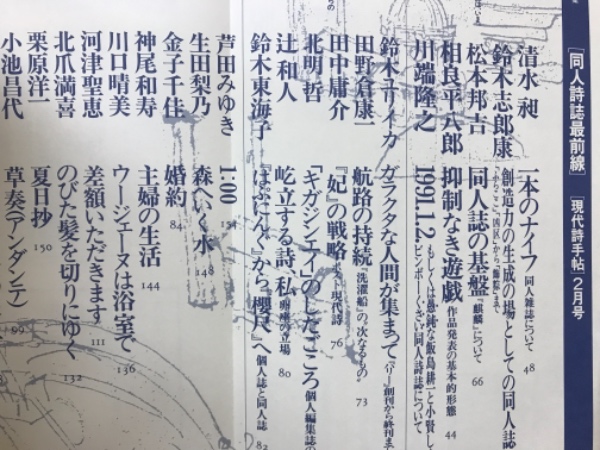 [同人詩誌最前線] [現代詩手帖]2月号
清水昶 一本のナイフ 同人雑誌について 48
鈴木志郎康 創造力の生成の場としての同人誌
松本邦吉 同人誌の基盤 『麒麟』について 66
相良平八郎 抑制なき遊戯 作品発表の基本的形態 44
川端隆之 1991.1.2. もしくは愚鈍な飯島耕一と小賢し
ビンボーくさい同人詩誌について
鈴木ユリイカ ガラクタな人間が集まって 創刊から終刊まで
田野倉康一 航路の持続 『洗濯船』の、次なるもの 73
田中庸介 『妃』の戦略 現代詩 76
北明哲 「ギガジンエイ」のしたごころ 個人編集誌の
辻和人 屹立する詩、私 の立場 80
鈴木東海子 『はぷにんぐ』から、『櫻尺』へ 個人誌と同人誌 82
芦田みゆき 1:00 154
生田梨乃 森へいく水 148
金子千佳 婚約 84
神尾和寿 主婦の生活 144
川口晴美 ウージェーヌは浴室で 136
河津聖恵 差額いただきます 111
北爪満喜 のびた髪を切りにゆく 132
栗原洋一 夏日抄 150
小池昌代 草奏(アンダンテ) 99